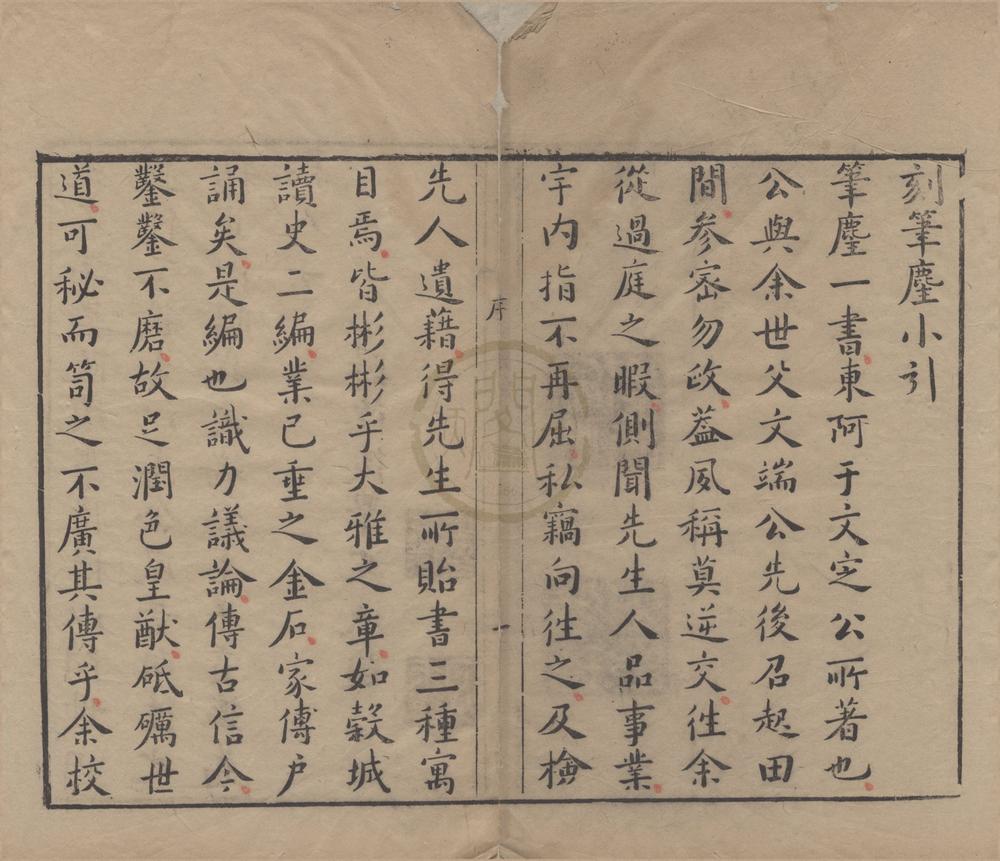 刻筆麈小引
筆麈一書東阿于文定公所著也
公與余世父文端公先後召起田
間參密勿政蓋夙稱莫逆交徃余
從過庭之暇側聞先生人品事業
宇內指不再屈私竊向徃之及檢
序
一
先人遺藉得先生所貽書三種寓
目焉皆彬彬乎大雅之章如穀城
讀史二編業已垂之金石家傳户
誦矣是編也識力議論傳古信今
鑿鑿不磨故足潤色皇猷砥礪世
道可秘而笥之不廣其傳乎余校